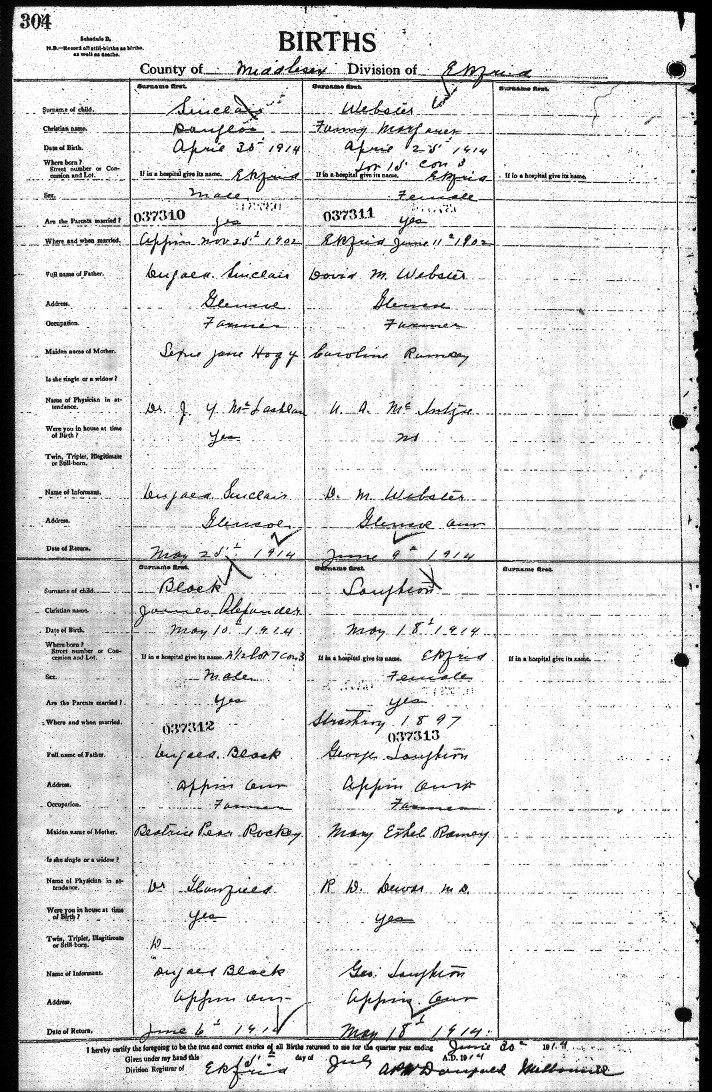 304
Schedule B.
N.B.—Record of still-births as births,
as well as deaths.
BIRTHS
County of Middlesex Division of Ekfrid
Surname first. Surname first. Surname first.
Surname of child. Sinclair Webster
Christian name. Douglas Fanny Margaret
Date of Birth. April 30th 1914 April 25th 1914
Where born? Lot 15 Con 3
Street number or Concession and Lot. If in a hospital give its name. Ekfrid If in a hospital give its name. Ekfrid If in a hospital give its name.
Sex. Male Female
Are the Parents married? 037310 yes 037311 yes
Where and when married. Appin Nov 25th 1902 Ekfrid June 11th 1902
Full name of Father. Dugald Sinclair David M. Webster
Address. Glencoe Glencoe
Occupation. Farmer Farmer
Maiden name of Mother. Jane Caroline Ramsey
Is she single or a widow?
Name of Physician in attendance. Dr. J. Y. McLachlan A. McIntyre
Were you in house at time of Birth? Yes no
Twin, Triplet, Illegitimate or Still-born.
Name of Informant. Dugald Sinclair D. M. Webster
Address. Glencoe Glencoe
Date of Return. May 25th 1914 June 9th 1914
Surname first. Surname first. Surname first.
Surname of child. Black Loughton
Christian name. James Alexander
Date of Birth. May 10th 1914 May 18th 1914
Where born?
Street number or Concession and Lot. If in a hospital give its name. Lot 7 Con 3 If in a hospital give its name. Ekfrid If in a hospital give its name.
Sex. Male Female
Are the Parents married? Yes yes
Where and when married. 037312 Strathroy 1897
037313
Full name of Father. Dugald Black George Loughton
Address. Appin Appin
Occupation. Farmer Farmer
Maiden name of Mother. Beatrice Rockey Mary Ethel Ramey
Is she single or a widow?
Name of Physician in attendance. Dr Glanfield R D. Dewar M D.
Were you in house at time of Birth? Yes yes
Twin, Triplet, Illegitimate or Still-born.
Name of Informant. Dugald Black Geo. Loughton
Address. Appin Appin
Date of Return. June 6th 1914 May 18th 1914
I hereby certify the foregoing to be the true and correct entries of all Births returned to me for the quarter year ending June 30th 1914
Given under my hand this 5th day of July A.D. 1914
Division Registrar of Ekfrid McDougald Melbourne